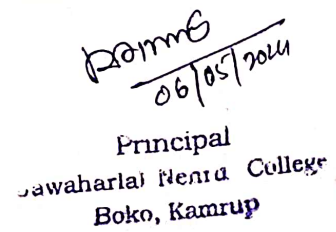 06/05/2024
Principal
Jawaharlal Nehru College
Boko, Kamrup